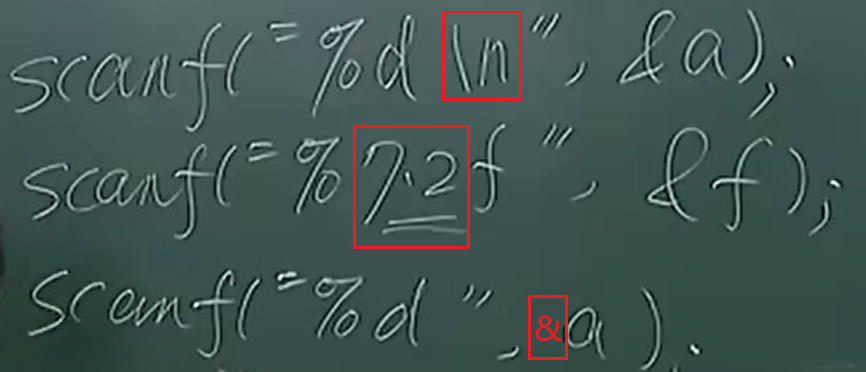 scanf("%d \n", &a);
scanf("%7.2f", &f);
scanf("%d", &a).